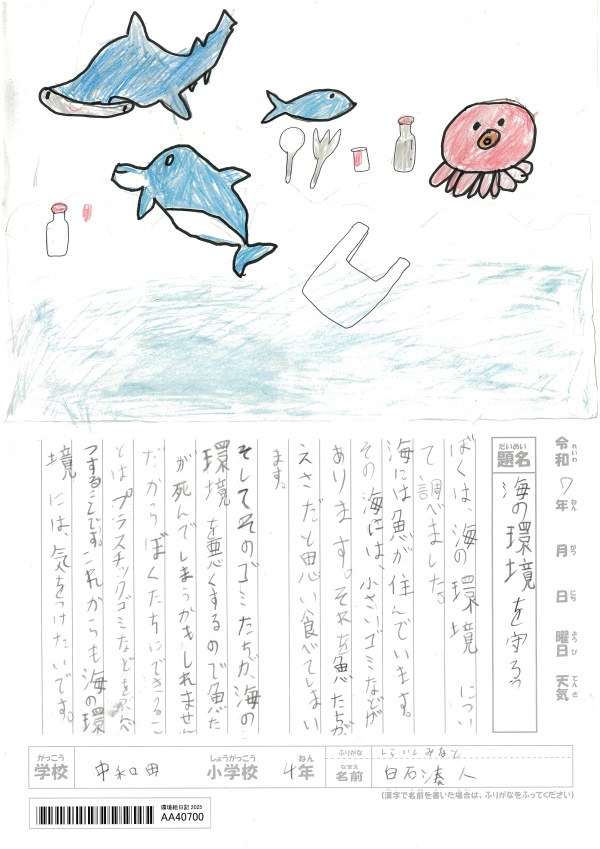 令和7年 月 日 曜日 天気
れいわ ねん がつ にち ようび てんき
だいめい
題名 海の環境を守ろう
ぼくは、海の環境につい
て、調べました。
海には魚が住んでいます。
その海には、小さいゴミなどが
あります。それを魚たちが
えさだと思い食べてしまい
ます。
そしてそのゴミたちが、海の
環境を悪くするので魚た
が死んでしまうかもしれません
だからぼくたちにできるこ
とはプラスチックゴミなどを
つすることです。これからも海の環
境には、気をつけたいです。
がっこう しょうがっこう ねん ふりがな しらいしみなと
学校 中和田 小学校 4年 なまえ 名前 白石湊人
(漢字で名前を書いた場合は、ふりがなをふってください)
環境絵日記 2025
AA40700